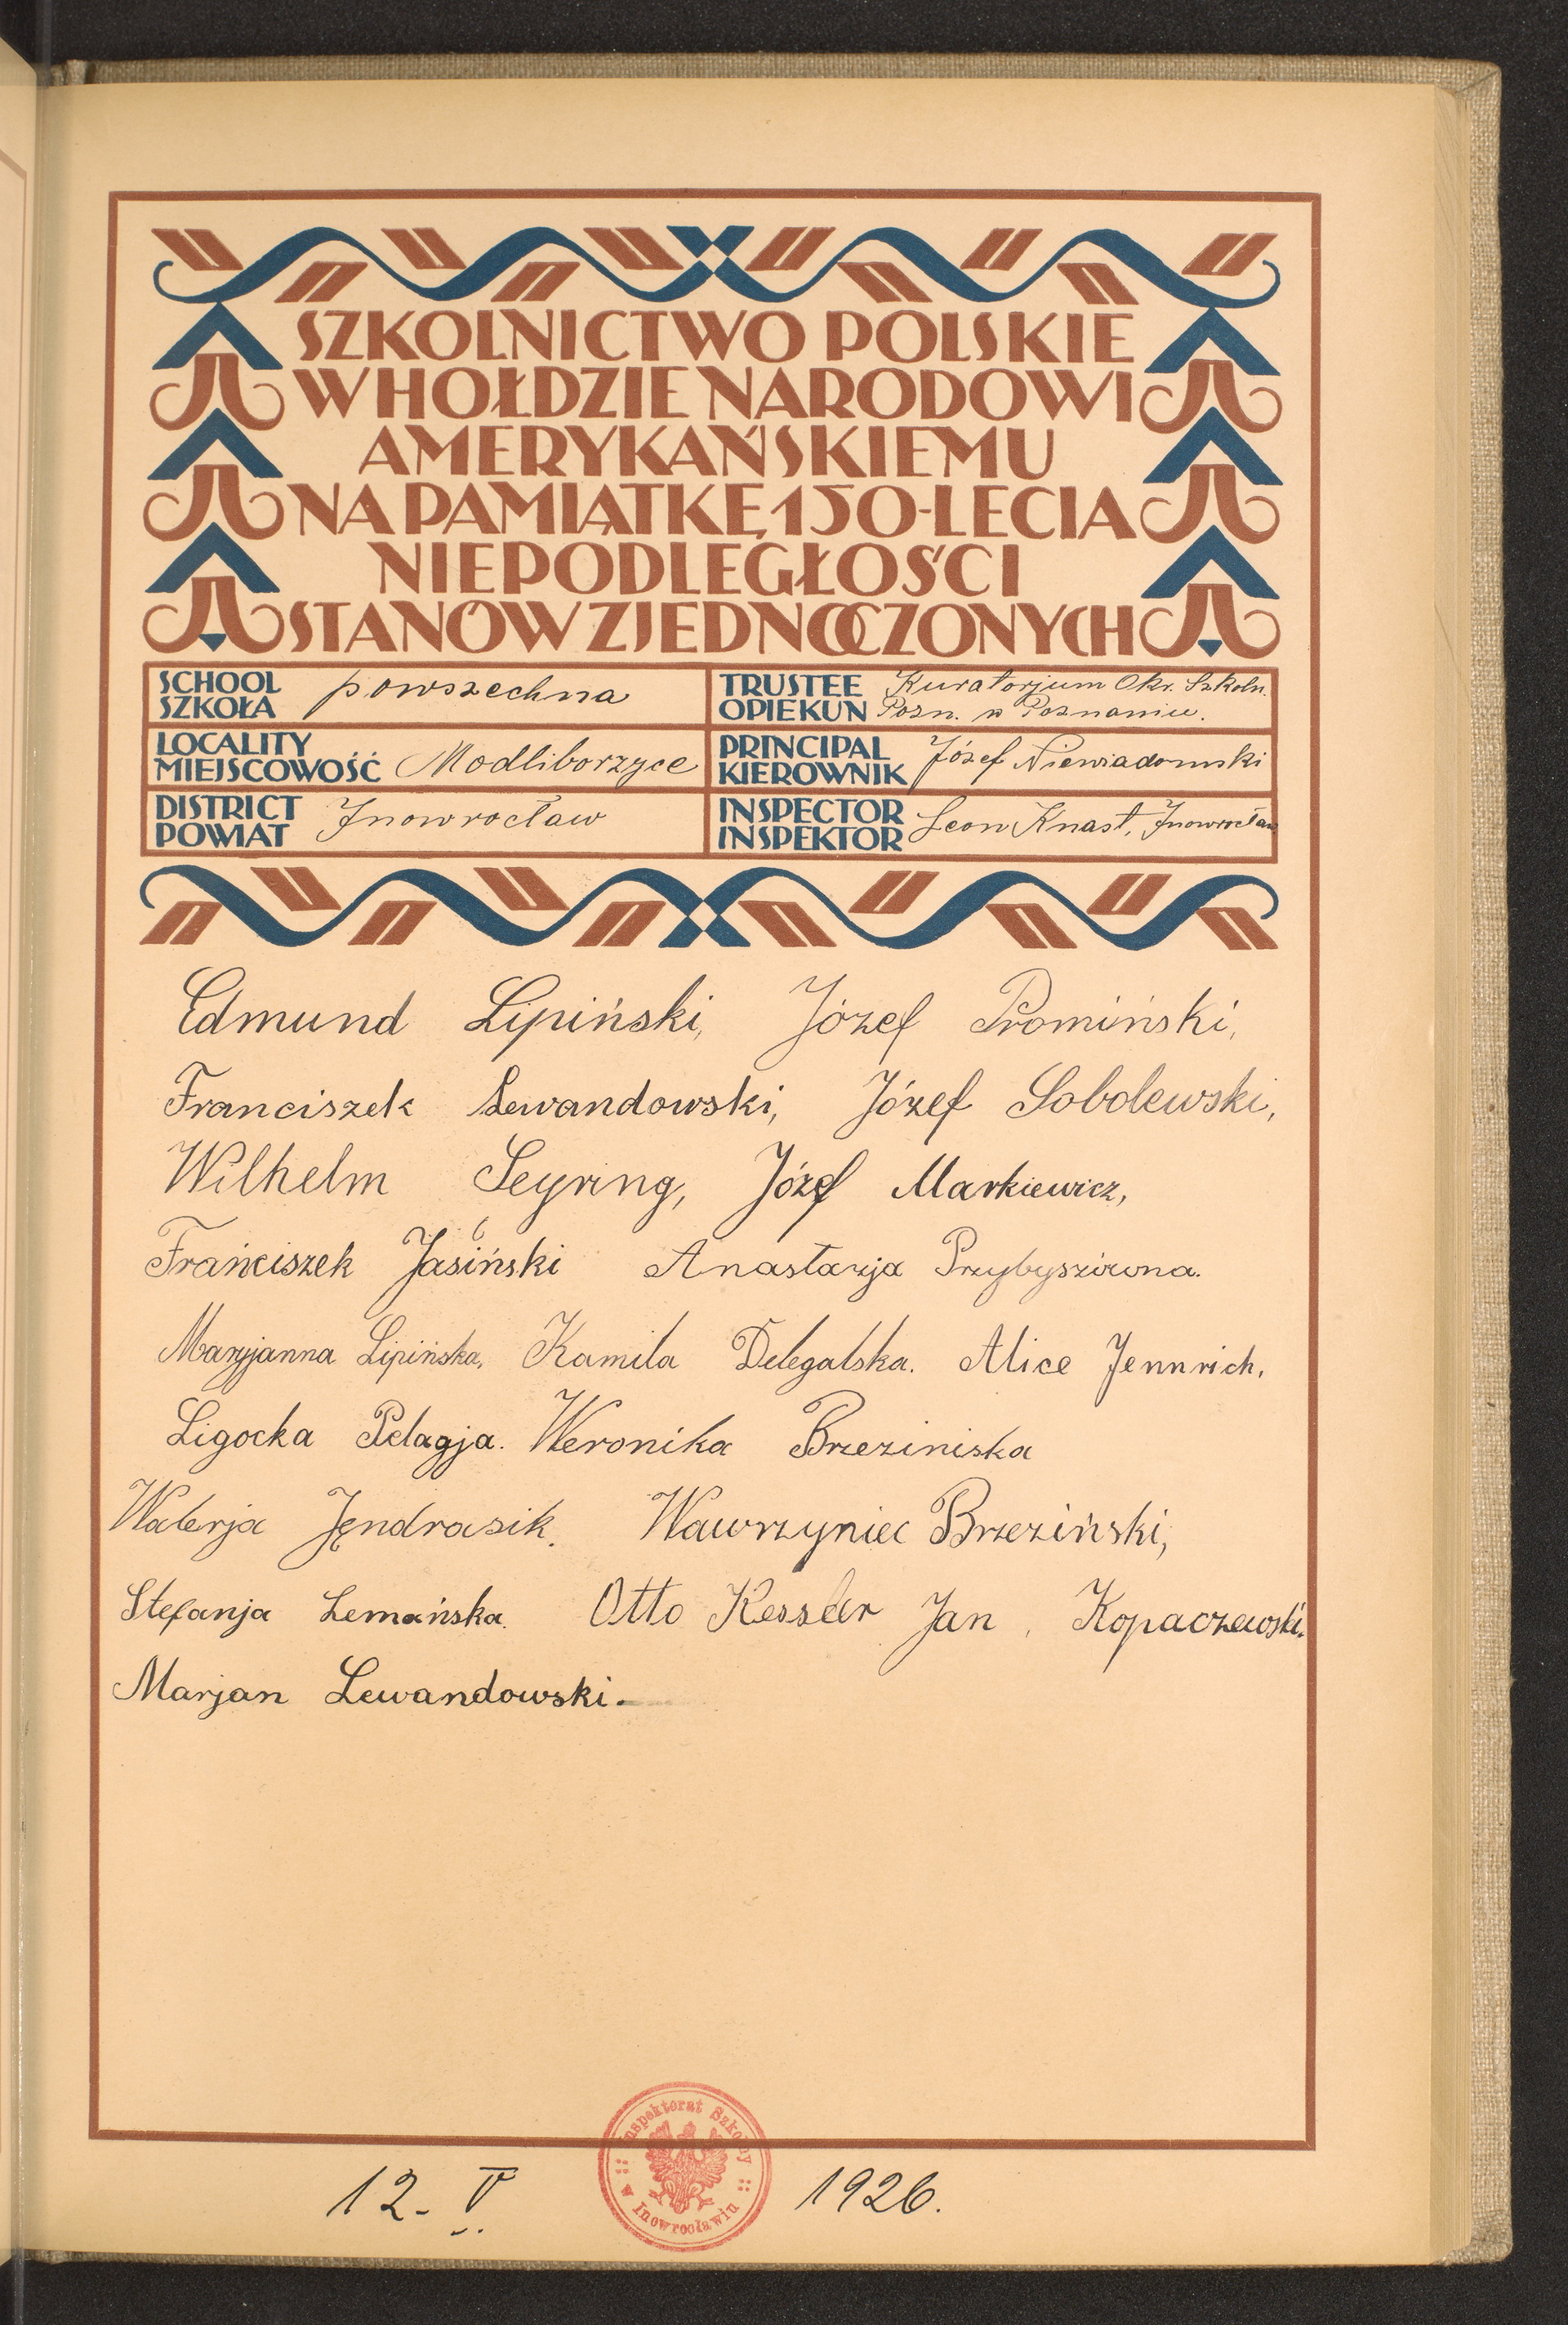 SZKOLNICTWO POLSKIE
W HOŁDZIE NARODOWI
AMERYKAŃSKIEMU
NA PAMIĄTKĘ 150-LECIA
NIEPODLEGŁOŚCI
STANÓW ZJEDNOCZONYCH
SCHOOL
SZKOŁA powszechna
TRUSTEE Kuratorjum Okr. Szkoln.
OPIEKUN Pozn. w Poznaniu.
LOCALITY
MIEJSCOWOŚĆ Modliborzyce
PRINCIPAL
KIEROWNIK Józef Niewiadomski
DISTRICT
POWIAT Inowrocław
INSPECTOR
INSPEKTOR Leon Knast, Inowrocław
Edmund Lipiński, Józef Promiński,
Franciszek Lewandowski, Józef Sobolewski,
Wilhelm Seyring, Józef Markiewicz,
Franciszek Jasiński Anastazja Przybyszówna.
Maryjanna Lipińska, Kamila Delegalska. Alice Jennrich.
Ligocka Pelagja. Weronika Brzeziniska
Walerja Jęndrasik. Wawrzyniec Brzeziński,
Stefanja Lemańska. Otto Kessler Jan Kopaczewski.
Marjan Lewandowski.
Inspektorat Szkolny
w Inowrocławiu
12. V. 1926.